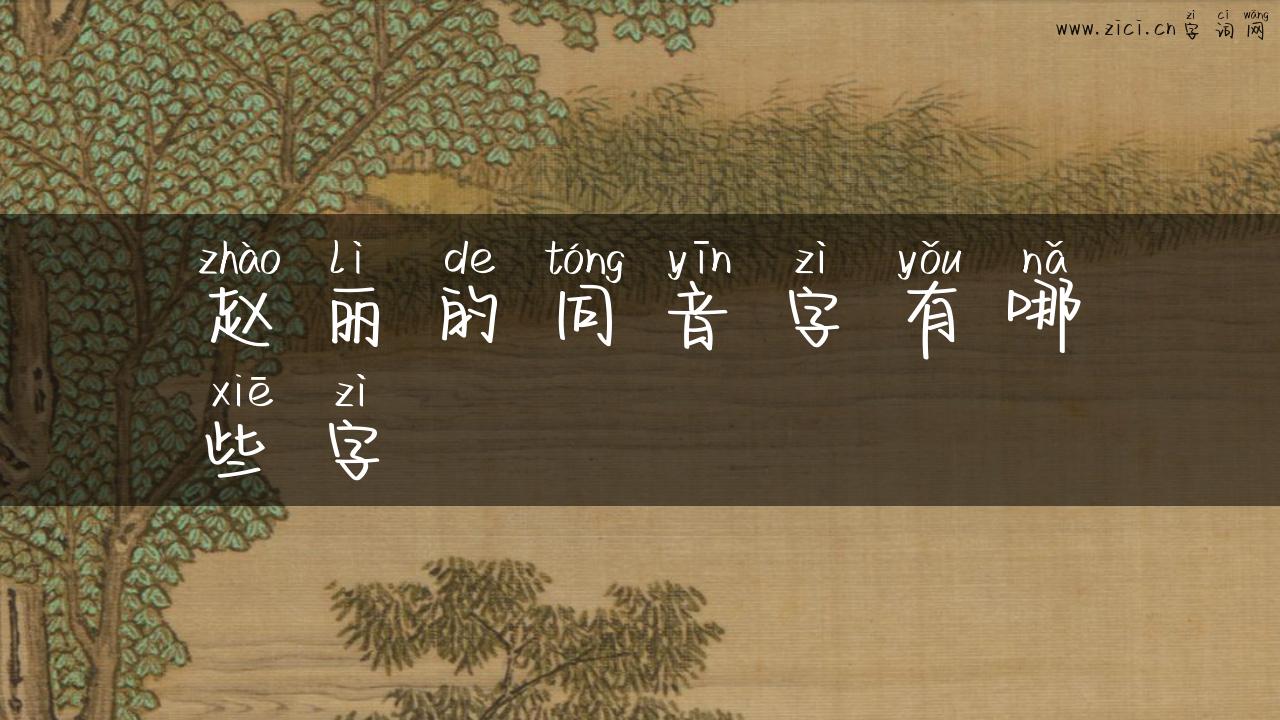 zì cí wǎng
www.zici.cn字词网
zhào lì de tóng yīn zì yǒu nǎ
赵丽的同音字有哪
xiē zì
些字